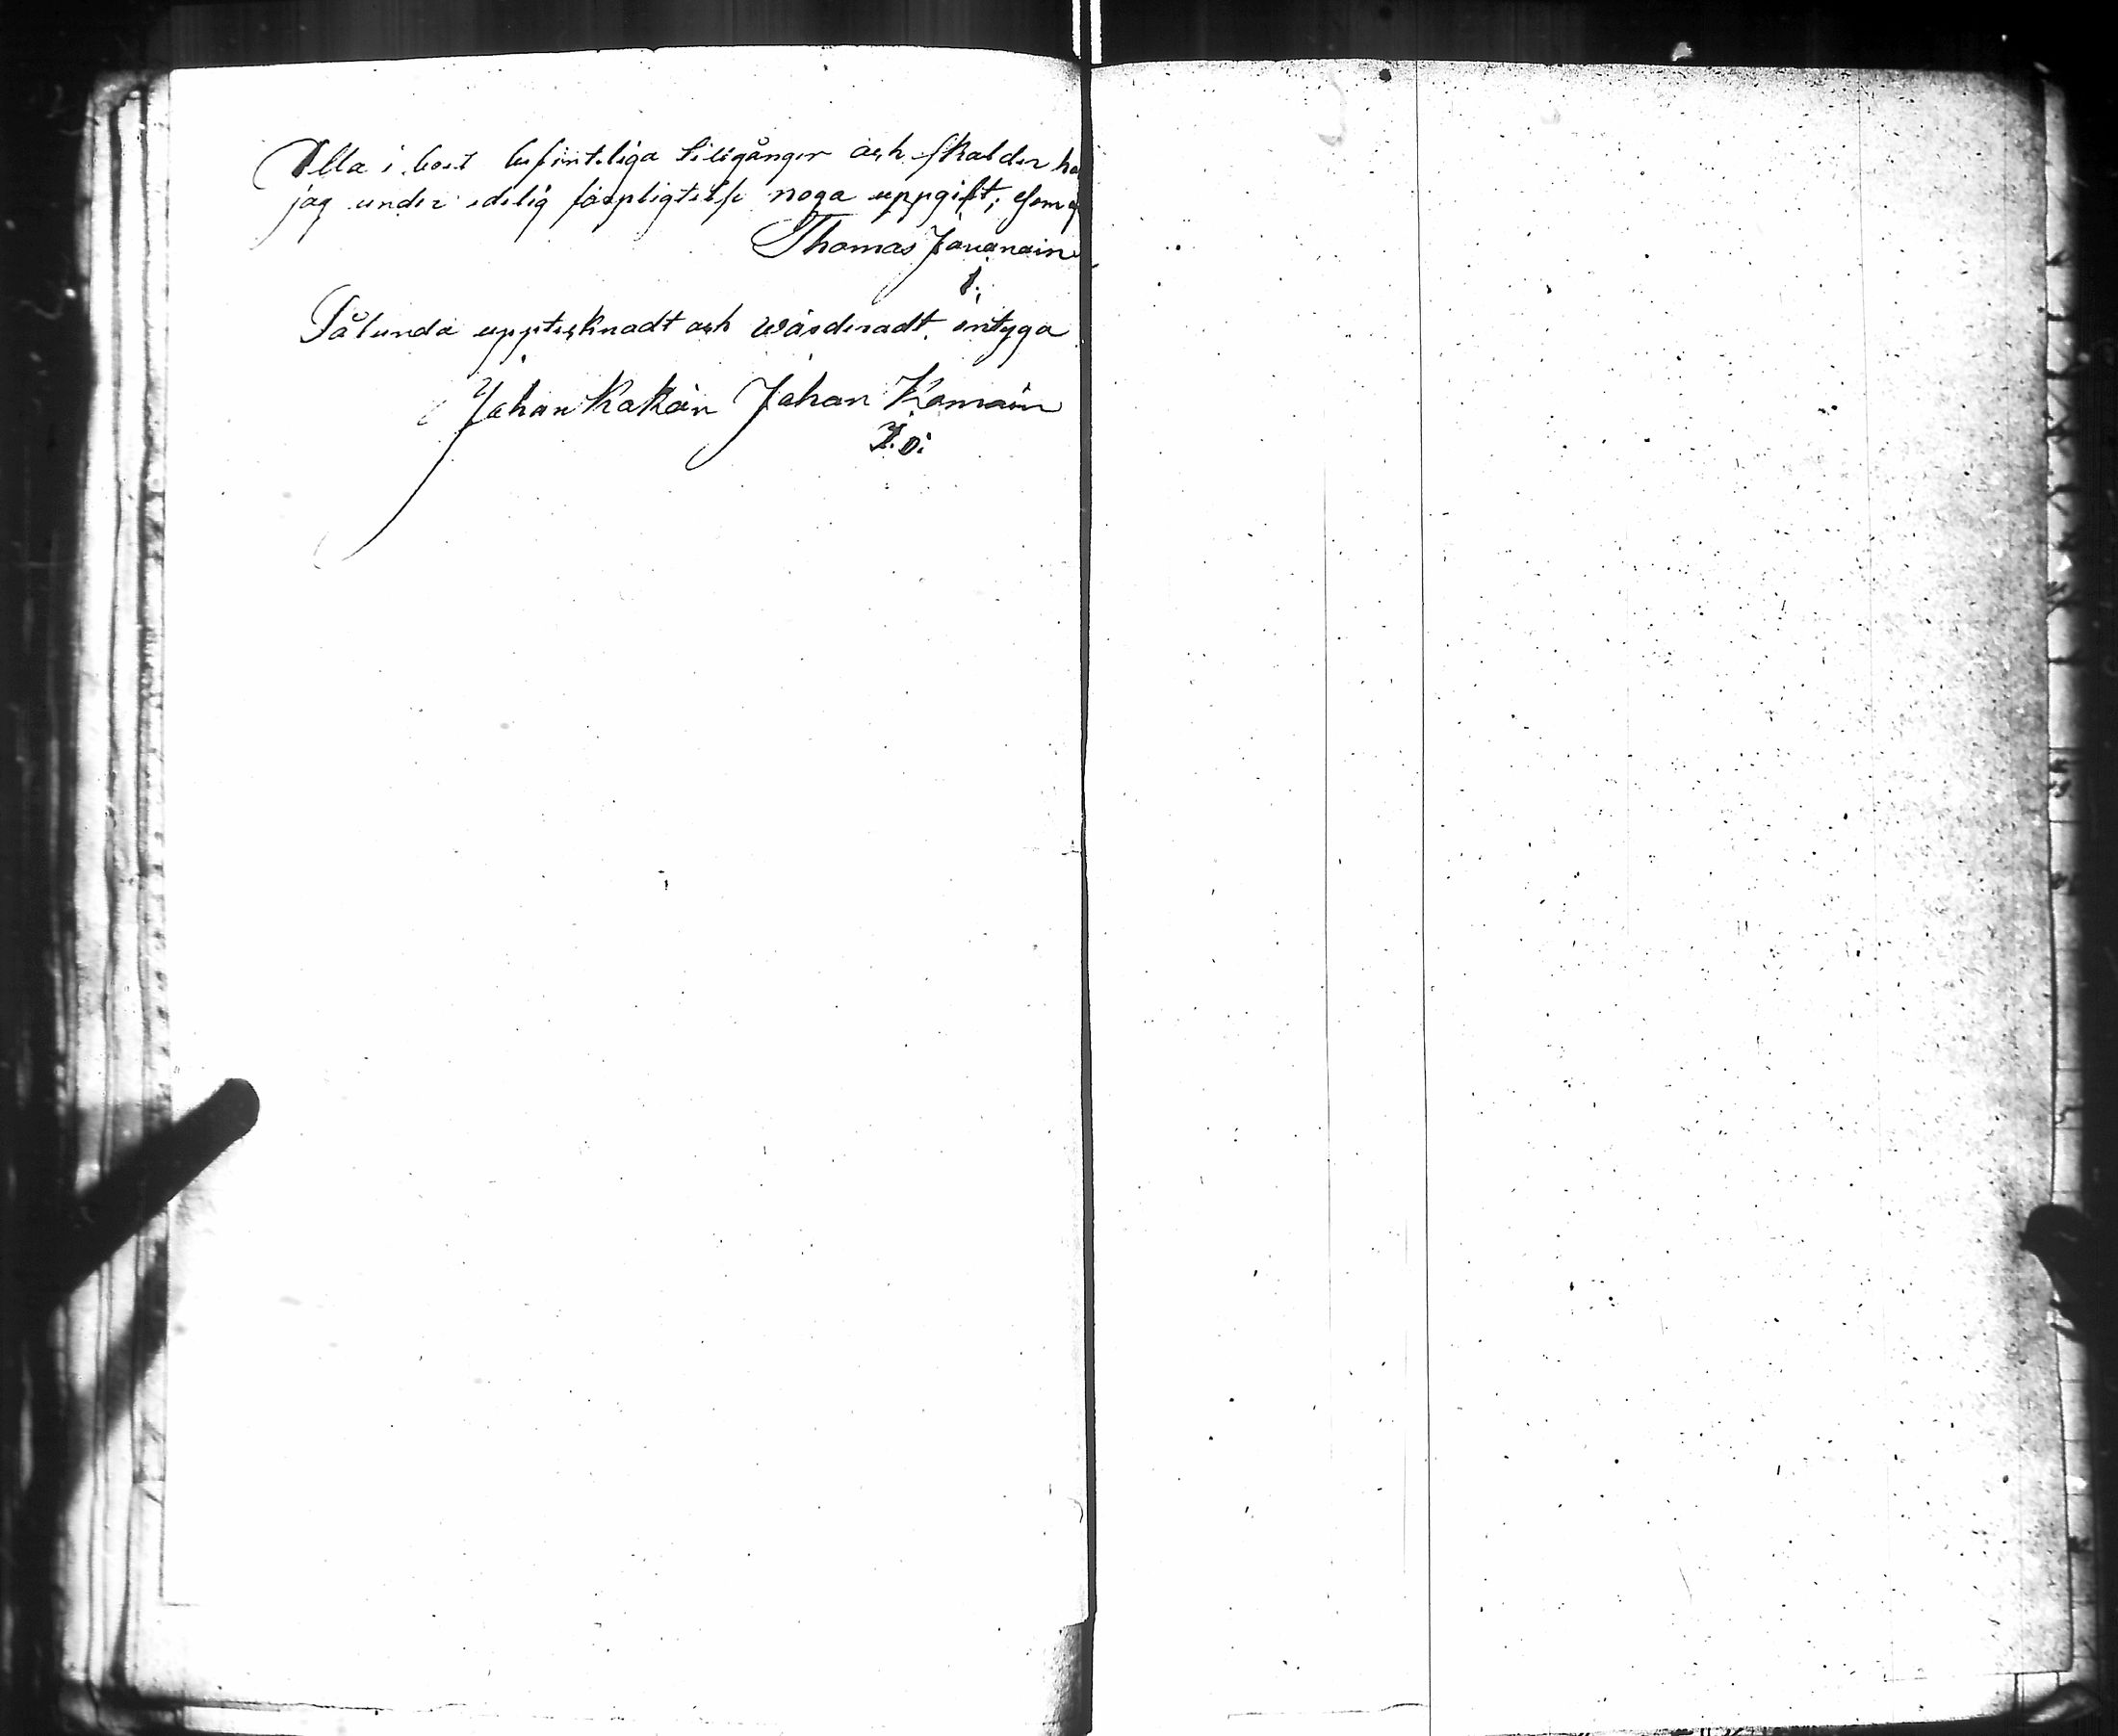 Alla i boet befinteliga tillgånger och skulder ha
jag under edelig förpligtelse noga uppgift; som
Thomas Javanain
Sålunda upptecknadt och wärderadt, intyga
Johan Kakoin Johan Komoin
I. O.